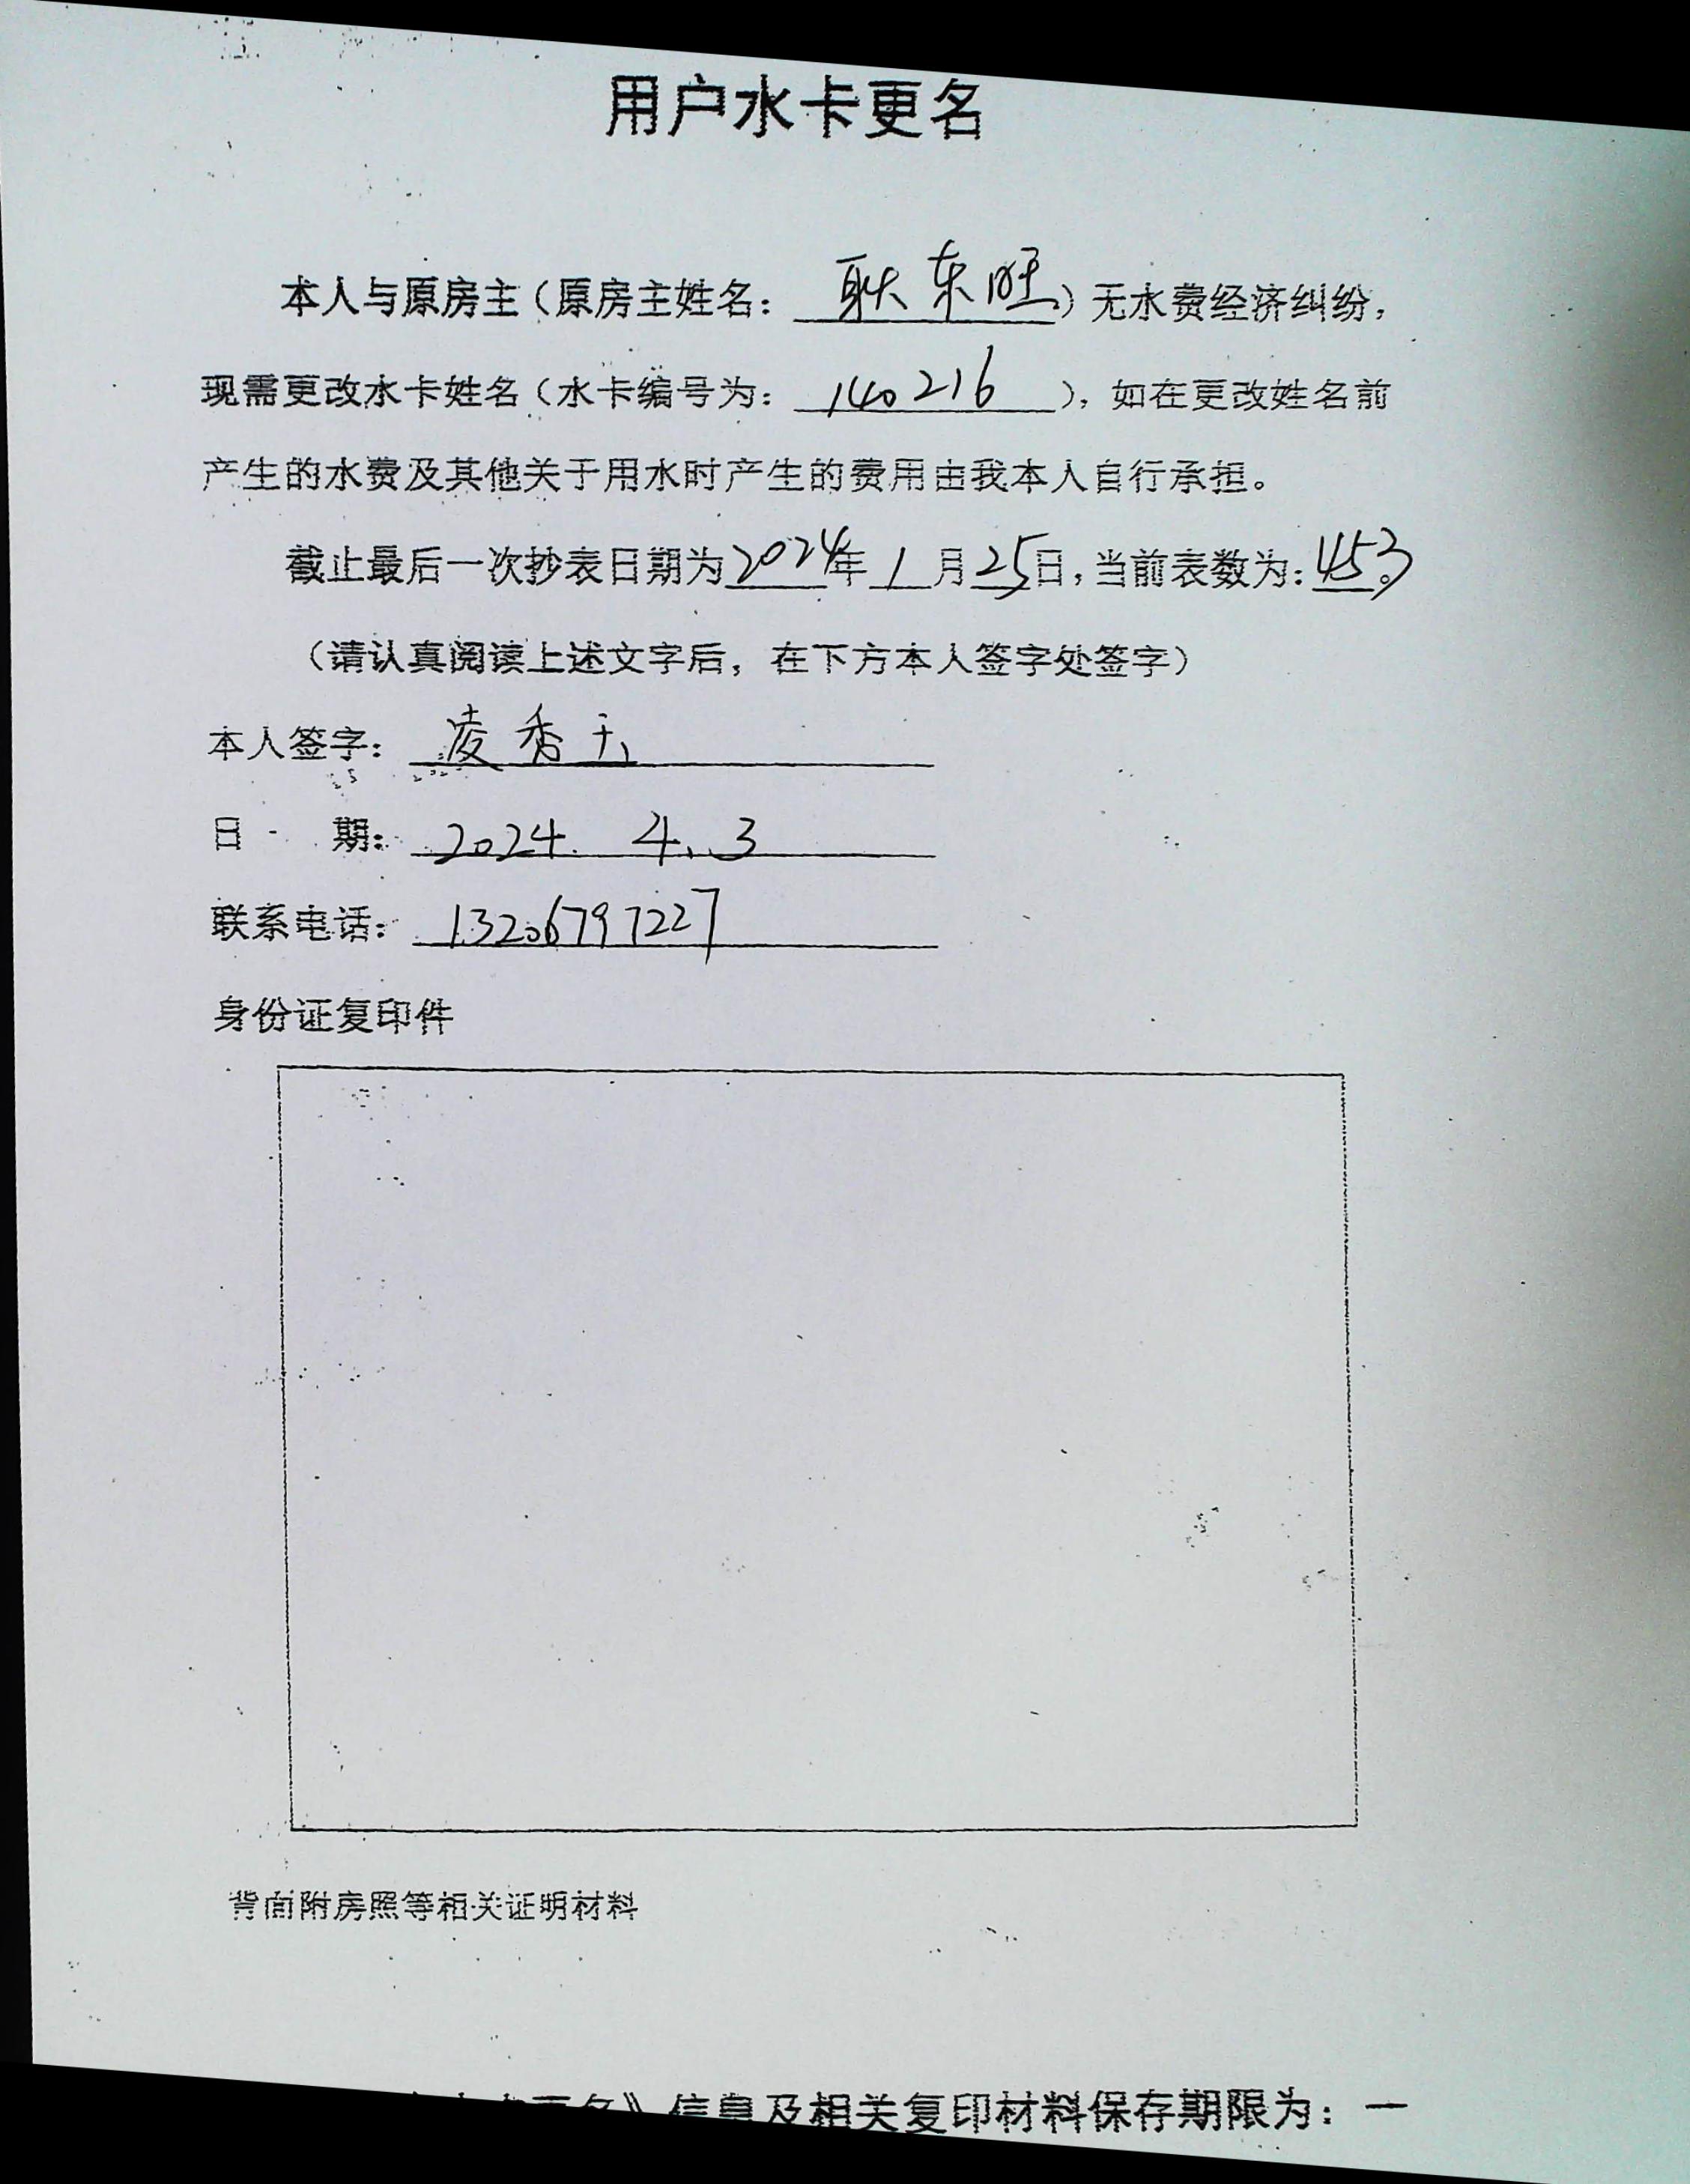 用户水卡更名
本人与原房主（原房主姓名：耿东旺）无水费经济纠纷，
现需更改水卡姓名（水卡编号为：140216），如在更改姓名前
产生的水费及其他关于用水时产生的费用由我本人自行承担。
截止最后一次抄表日期为2024年1月25日，当前表数为：453。
（请认真阅读上述文字后，在下方本人签字处签字）
本人签字：凌秀玉
日 期：2024. 4. 3
联系电话：13206797227
身份证复印件
背面附房照等相关证明材料
更名》信息及相关复印材料保存期限为：一